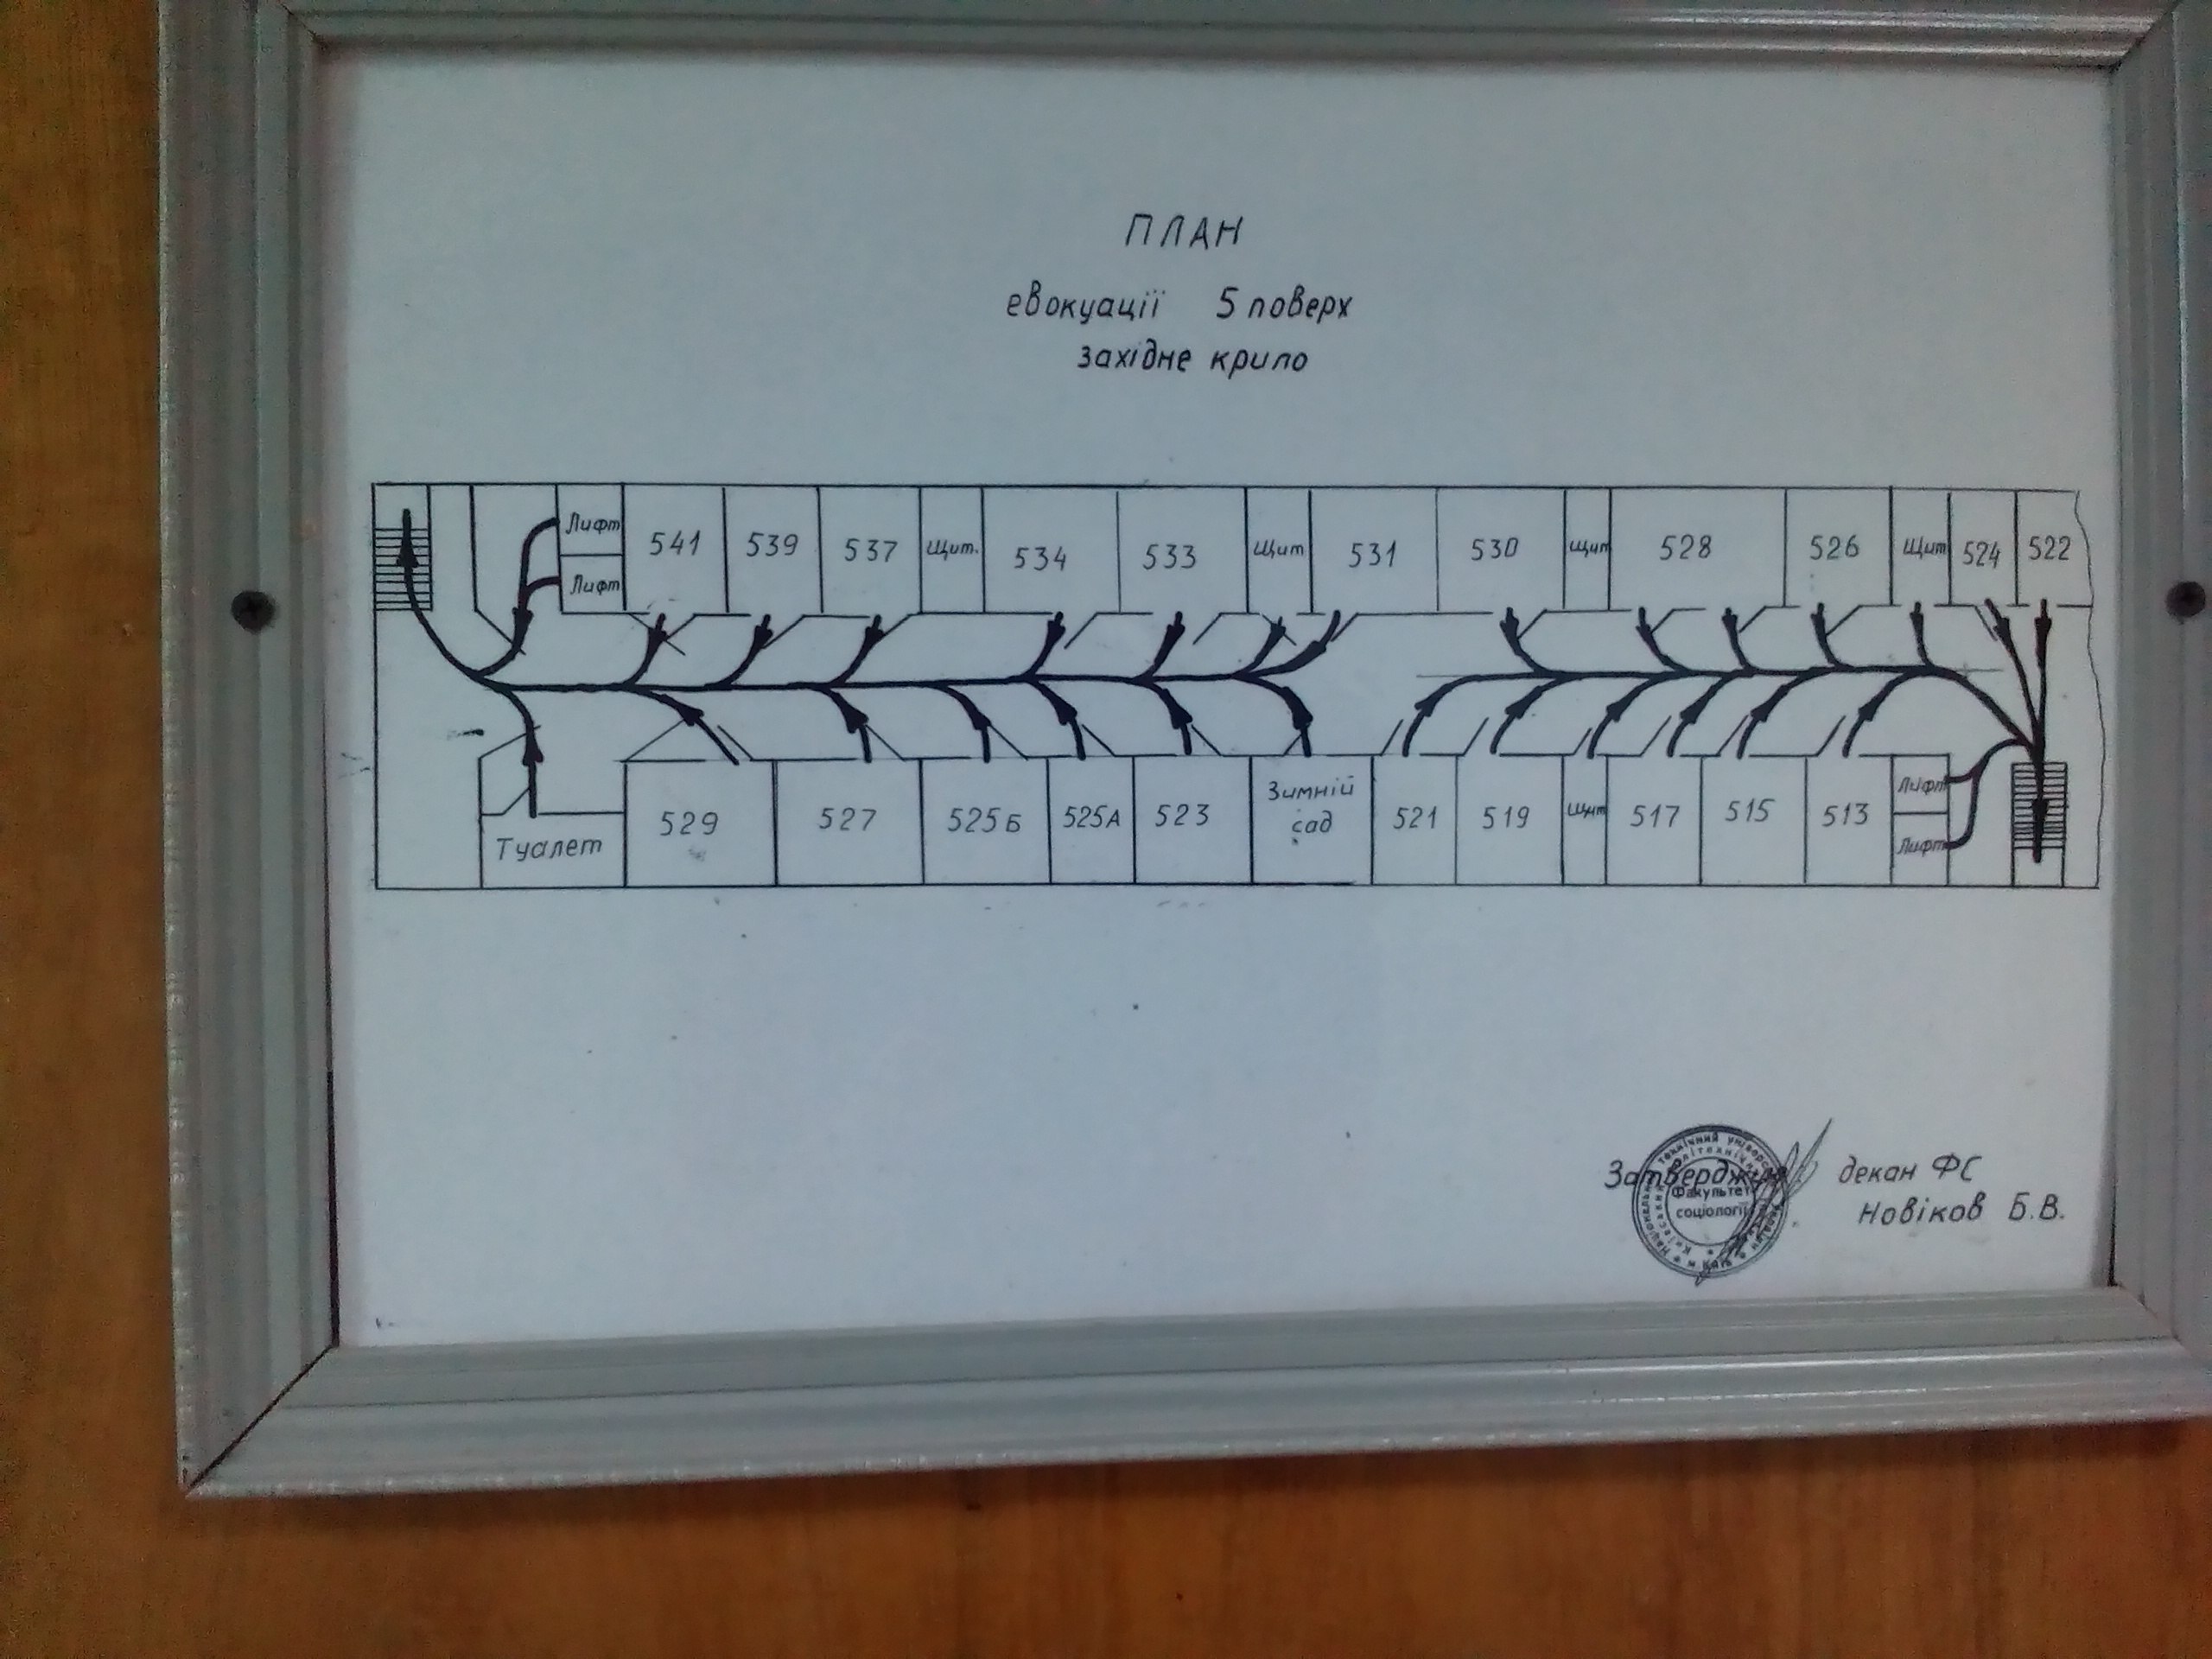 ПЛАН
евокуації 5 поверх
західне крило
Лифт
Лифт
541 539 537 Щит. 534 533 Щит 531 530 Щит 528 526 Щит 524 522
Туалет 529 527 525Б 525А 523
Зимній
сад
521 519 Щит 517 515 513
Лифт
Лифт
Затверджую декан ФС
Новіков Б.В.
Факультет
соціології